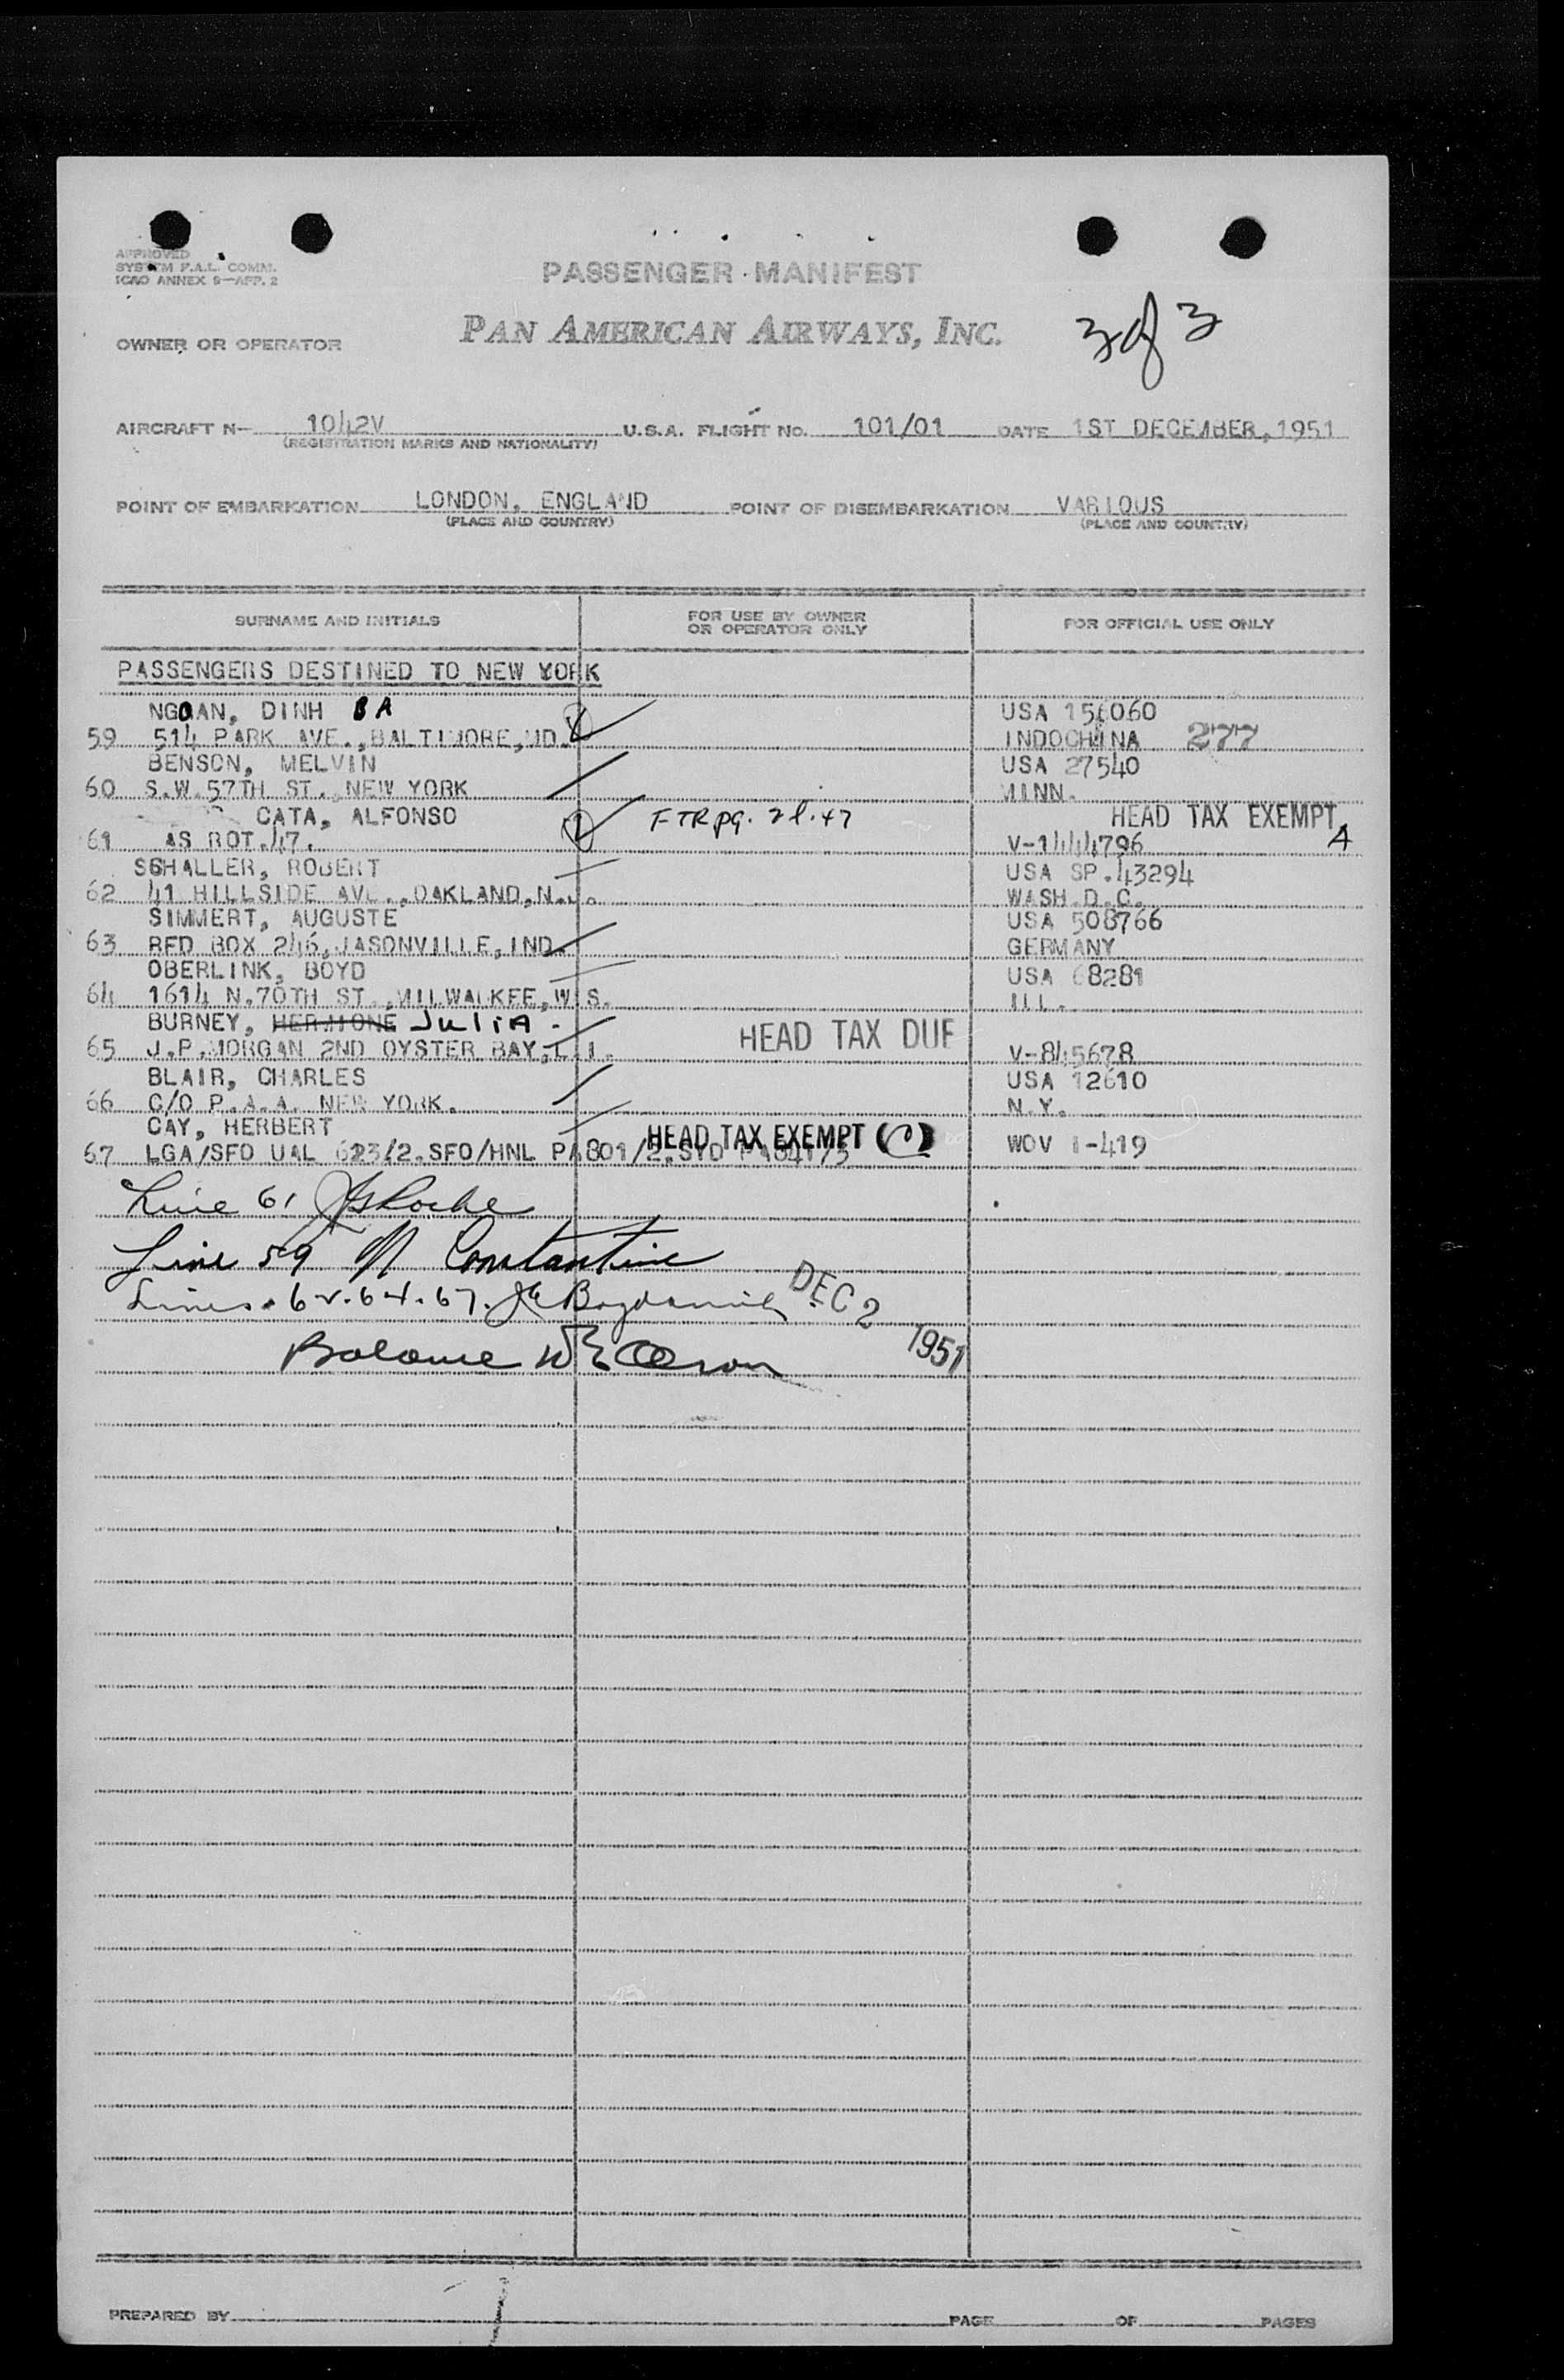 APPROVED
SYSTEM F.A.L. COMM.
ICAO ANNEX 9—APP. 2
PASSENGER MANIFEST
OWNER OR OPERATOR
PAN AMERICAN AIRWAYS, INC.
3 of 3
AIRCRAFT N— 1042V U.S.A. FLIGHT NO. 101/01 DATE 1ST DECEMBER, 1951
(REGISTRATION MARKS AND NATIONALITY)
POINT OF EMBARKATION LONDON, ENGLAND POINT OF DISEMBARKATION VARIOUS
(PLACE AND COUNTRY) (PLACE AND COUNTRY)
SURNAME AND INITIALS FOR USE BY OWNER OR OPERATOR ONLY FOR OFFICIAL USE ONLY
PASSENGERS DESTINED TO NEW YORK
NGOAN, DINH BA USA 156060
59 514 PARK AVE.,BALTIMORE,MD. INDOCHINA 277
BENSON, MELVIN USA 27540
60 S.W.57TH ST., NEW YORK MINN.
CATA, ALFONSO FTR pg. 2 l. 47 HEAD TAX EXEMPT
61 AS ROT.47. V-1444796 A
SCHALLER, ROBERT USA SP.43294
62 41 HILLSIDE AVE.,OAKLAND,N.J. WASH.D.C.
SIMMERT, AUGUSTE USA 508766
63 RFD BOX 246,JASONVILLE,IND. GERMANY
OBERLINK, BOYD USA 68281
64 1614 N.70TH ST.,MILWAUKEE,WIS. ILL.
BURNEY, HERMIONE JULIA. HEAD TAX DUE
65 J.P.MORGAN 2ND OYSTER BAY,L.I. V-845678
BLAIR, CHARLES USA 12610
66 C/O P.A.A. NEW YORK. N.Y.
CAY, HERBERT HEAD TAX EXEMPT (C)
67 LGA/SFO UAL 623/2.SFO/HNL PA801/2.SYD PA841/3 WOV 1-419
Line 61
Line 59 N Constantine
Lines. 62. 64. 67.
DEC 2 1951
Balance
PREPARED BY PAGE OF PAGES